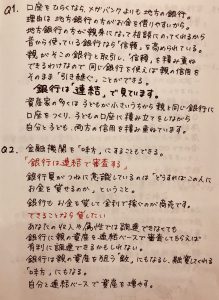 Q1. 口座をひらくなら、メガバンクよりも地方の銀行。
理由は地方銀行の方がお金を借りやすいから。
地方銀行の方が親身になって相談にのってくれるから
昔から使っている銀行なら「信頼」を高められている。
親がその銀行と取引し、「信頼」を積み重ね
できるわけなので同じ銀行を使えば親の信用を
そのまま「引き継ぐ」ことができる。
銀行は「連結」で見ています。
資産家の多くは子どもが小さいうちから親と同じ銀行に
口座をつくり、子どもの口座に積み立てをしながら
自分と子ども、両方の信用を積み重ねています。
Q2. 金融機関を"味方"にすることもできる。
「銀行は連結で審査する」
銀行員がつねに意識しているのは「どうすればこの人に
お金を貸せるのか」ということ。
銀行もお金を貸して金利で稼ぐのが商売です。
できることなら貸したい
あなたの収入や属性では融資できなくても
銀行に親の資産を連結ベースで審査してもらえば
有利に融資できるかもしれない。
銀行は親の資産を狙う「敵」にもなるし、融資してくれる
"味方"にもなる。
自分と連結ベースで資産を増やす。